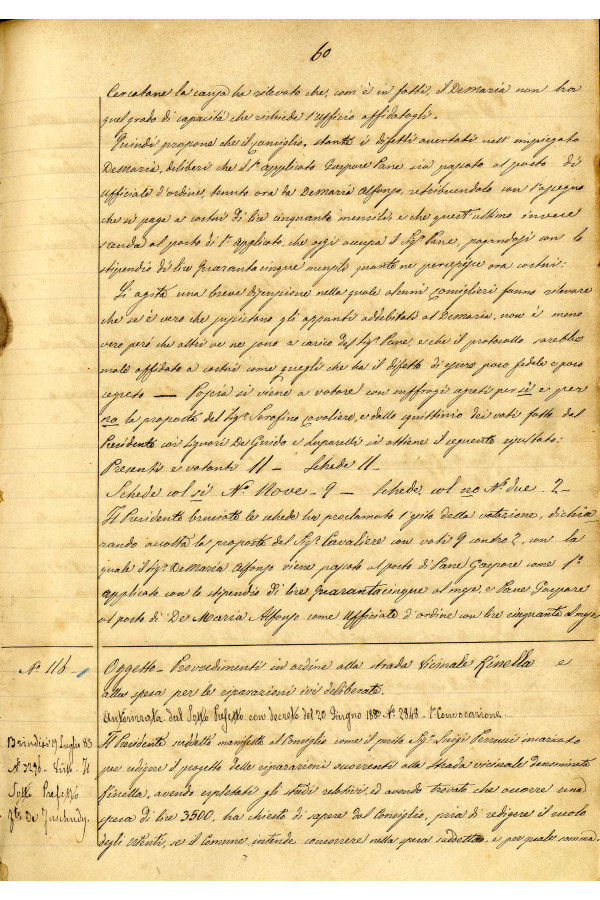 60
Cercatane la causa ha rilevato che, com'è in fatti, il DeMaria non ha
quel grado di capacità che richiede l'ufficio affidatogli.
Quindi propone che il Consiglio, stante i difetti avertati nell'impiegato
DeMaria, deliberi che il 1° applicato Gaspare Pane sia passato al posto di
ufficiale d'ordine, tenuto ora da DeMaria Alfonso, retribuendolo con l'assegno
che si paga a costui di lire cinquanta mensili, e che quest'ultimo invece
scenda al posto di 1° applicato, che oggi occupa il Sigr Pane, pagandosi con lo
stipendio di lire quarantacinque mensili quante ne percepisse ora costui:
Si agita una breve discussione nella quale alcuni Consiglieri fanno rilevare
che se è vero che sussistano gli appunti addebitati al DeMaria, non è meno
vero però che altri ve ne sono a carico del Sigr Pane, e che il protocollo sarebbe
male affidato a costui come quegli che ha il difetto di essere poco fedele e poco
segreto — Poscia si viene a votare con suffragi segreti per sì e per
no la proposta del Sigr Serafino Cavaliere, e dallo squittinio dei voti fatto dal
Presidente coi Signori De Guido e Luparelli si ottiene il seguente risultato:
Presenti e votanti 11 — Schede 11 —
Schede col sì N° Nove - 9 — Schede col no N° due 2 —
Il Presidente bruciate le schede ha proclamato l'esito della votazione, dichia
rando accolta la proposta del Sigr Cavaliere con voti 9 contro 2, con la
quale il Sigr DeMaria Alfonso viene passato al posto di Pane Gaspare come 1°
applicato con lo stipendio di lire quarantacinque al mese, e Pane Gaspare
al posto di De Maria Alfonso come Ufficiale d'ordine con lire cinquanta al mese
N° 116 — Oggetto — Provvedimenti in ordine alla strada Vicinale Rinella e
alla spesa per le riparazioni ivi deliberate.
Autorizzata dal Sotto Prefetto con decreto del 20 Giugno 1883 - N° 2848 - 1a Convocazione.
Brindisi 19 Luglio 83
N° 3296 - Visto -
Sotto Prefetto
Il Presidente suddetto manifesta al Consiglio come il perito Sigr Luigi Perrucci incaricato
per redigere il progetto delle riparazioni occorrenti alla strada vicinale denominata
Rinella, avendo espletati gli studi relativi, ed avendo trovato che occorre una
spesa di lire 3500, ha chiesto di sapere dal Consiglio, pria di redigere il ruolo
degli utenti, se il Comune intende concorrere nella spesa suddetta, e per quale somma.